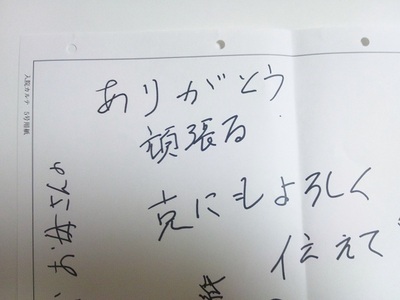 ありがとう
頑張る
克にもよろしく
伝えて
お母さんの
紙
入院カルテ 5号用紙